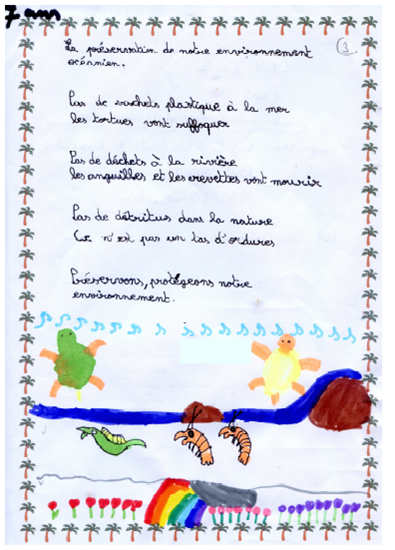 7 ans
La préservation de notre environnement
océanien.
3
Pas de sachets plastique à la mer
les tortues vont suffoquer
Pas de déchets à la rivière
les anguilles et les crevettes vont mourir
Pas de détritus dans la nature
Ce n'est pas un tas d'ordures
Préservons, protégeons notre
environnement.